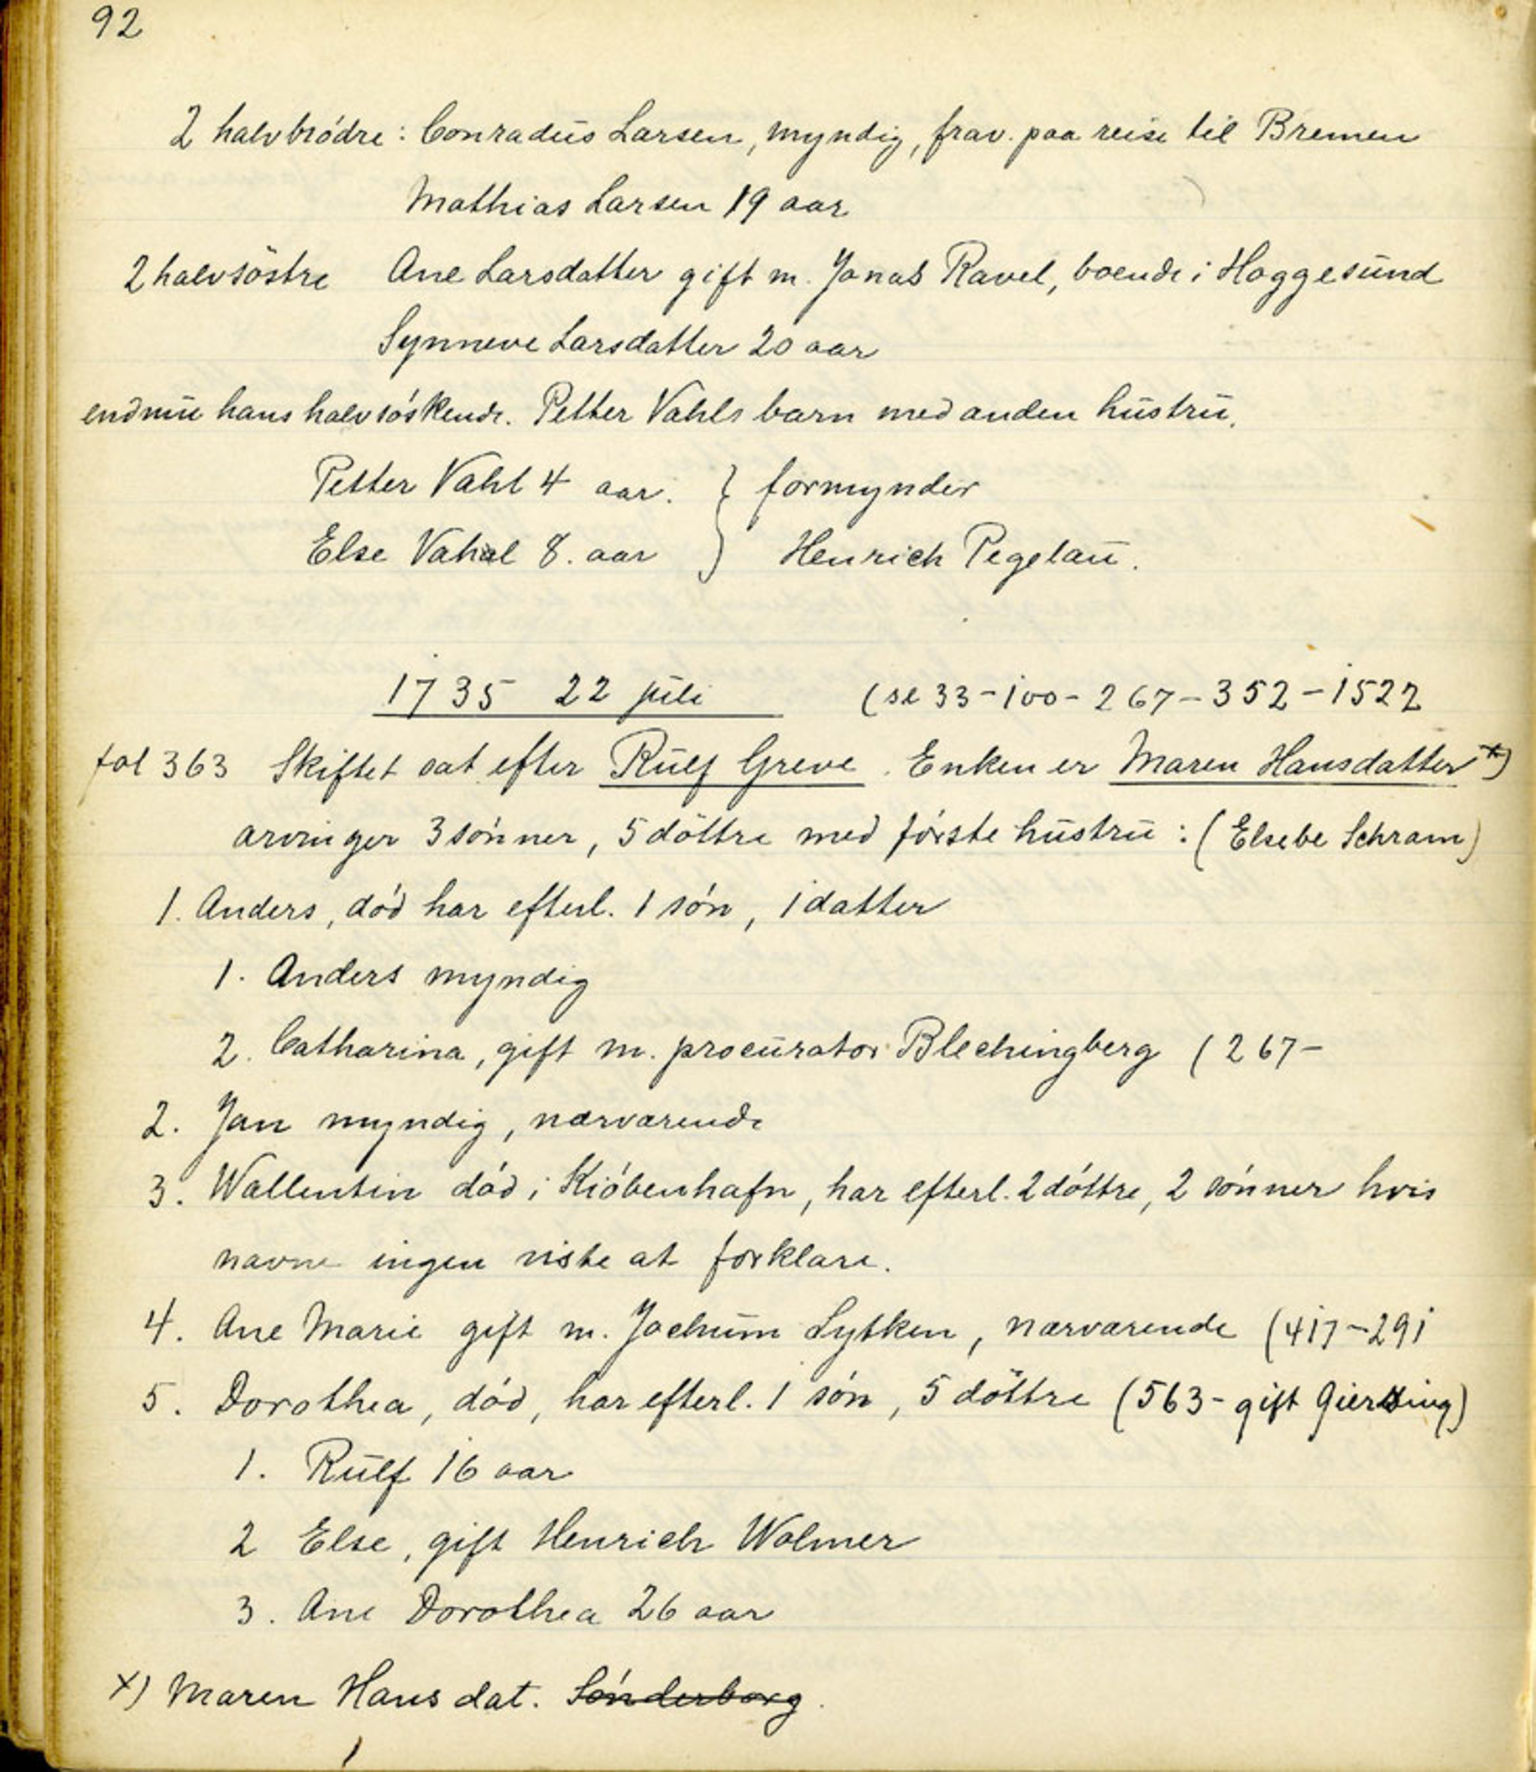 92
2 halvbródre: Conradus Larsen, myndig, frav. paa reise til Bremen
Mathias Larsen 19 aar
2 halvsöstre Ane Larsdatter gift m. Jonas Ravel, boende i Hoggesund
Synneve Larsdatter 20 aar
endnu hans halvsóskende. Petter Vahls barn med anden hustru.
Petter Vahl 4 aar. } formynder
Else Vahl 8. aar } Henrich Pegelau.
1735 22 juli (se 33-100-267-352-1522
fol 363 Skiftet sat efter Rulf Greve. Enken er Maren Hansdatter x)
arvinger 3 sónner, 5 döttre med fórste hustru: (Elsebe Schram)
1. Anders, dód har efterl. 1 són, 1 datter
1. Anders myndig
2. Catharina, gift m. procurator Blechingberg (267-
2. Jan myndig, nærværende
3. Wallentin dód i Kióbenhafn, har efterl. 2 döttre, 2 sónner hvis
navne ingen viste at forklare.
4. Ane Marie gift m. Jochum Lytken, nærværende (417-291
5. Dorothea, dód, har efterl. 1 són, 5 döttre (563- gift Giertsing)
1. Rulf 16 aar
2 Else, gift Henrich Wolmer
3. Ane Dorothea 26 aar
x) Maren Hansdat. Sónderborg.